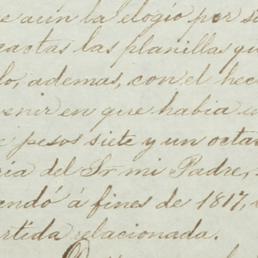 e aún la elogio por su
exactas las planillas qu
lo, ademas, con el hec
venir en que habia e
e pesos siete y un octa
ria del Sr mi Padre,
endó á fines de 1817,
artida relacionada.